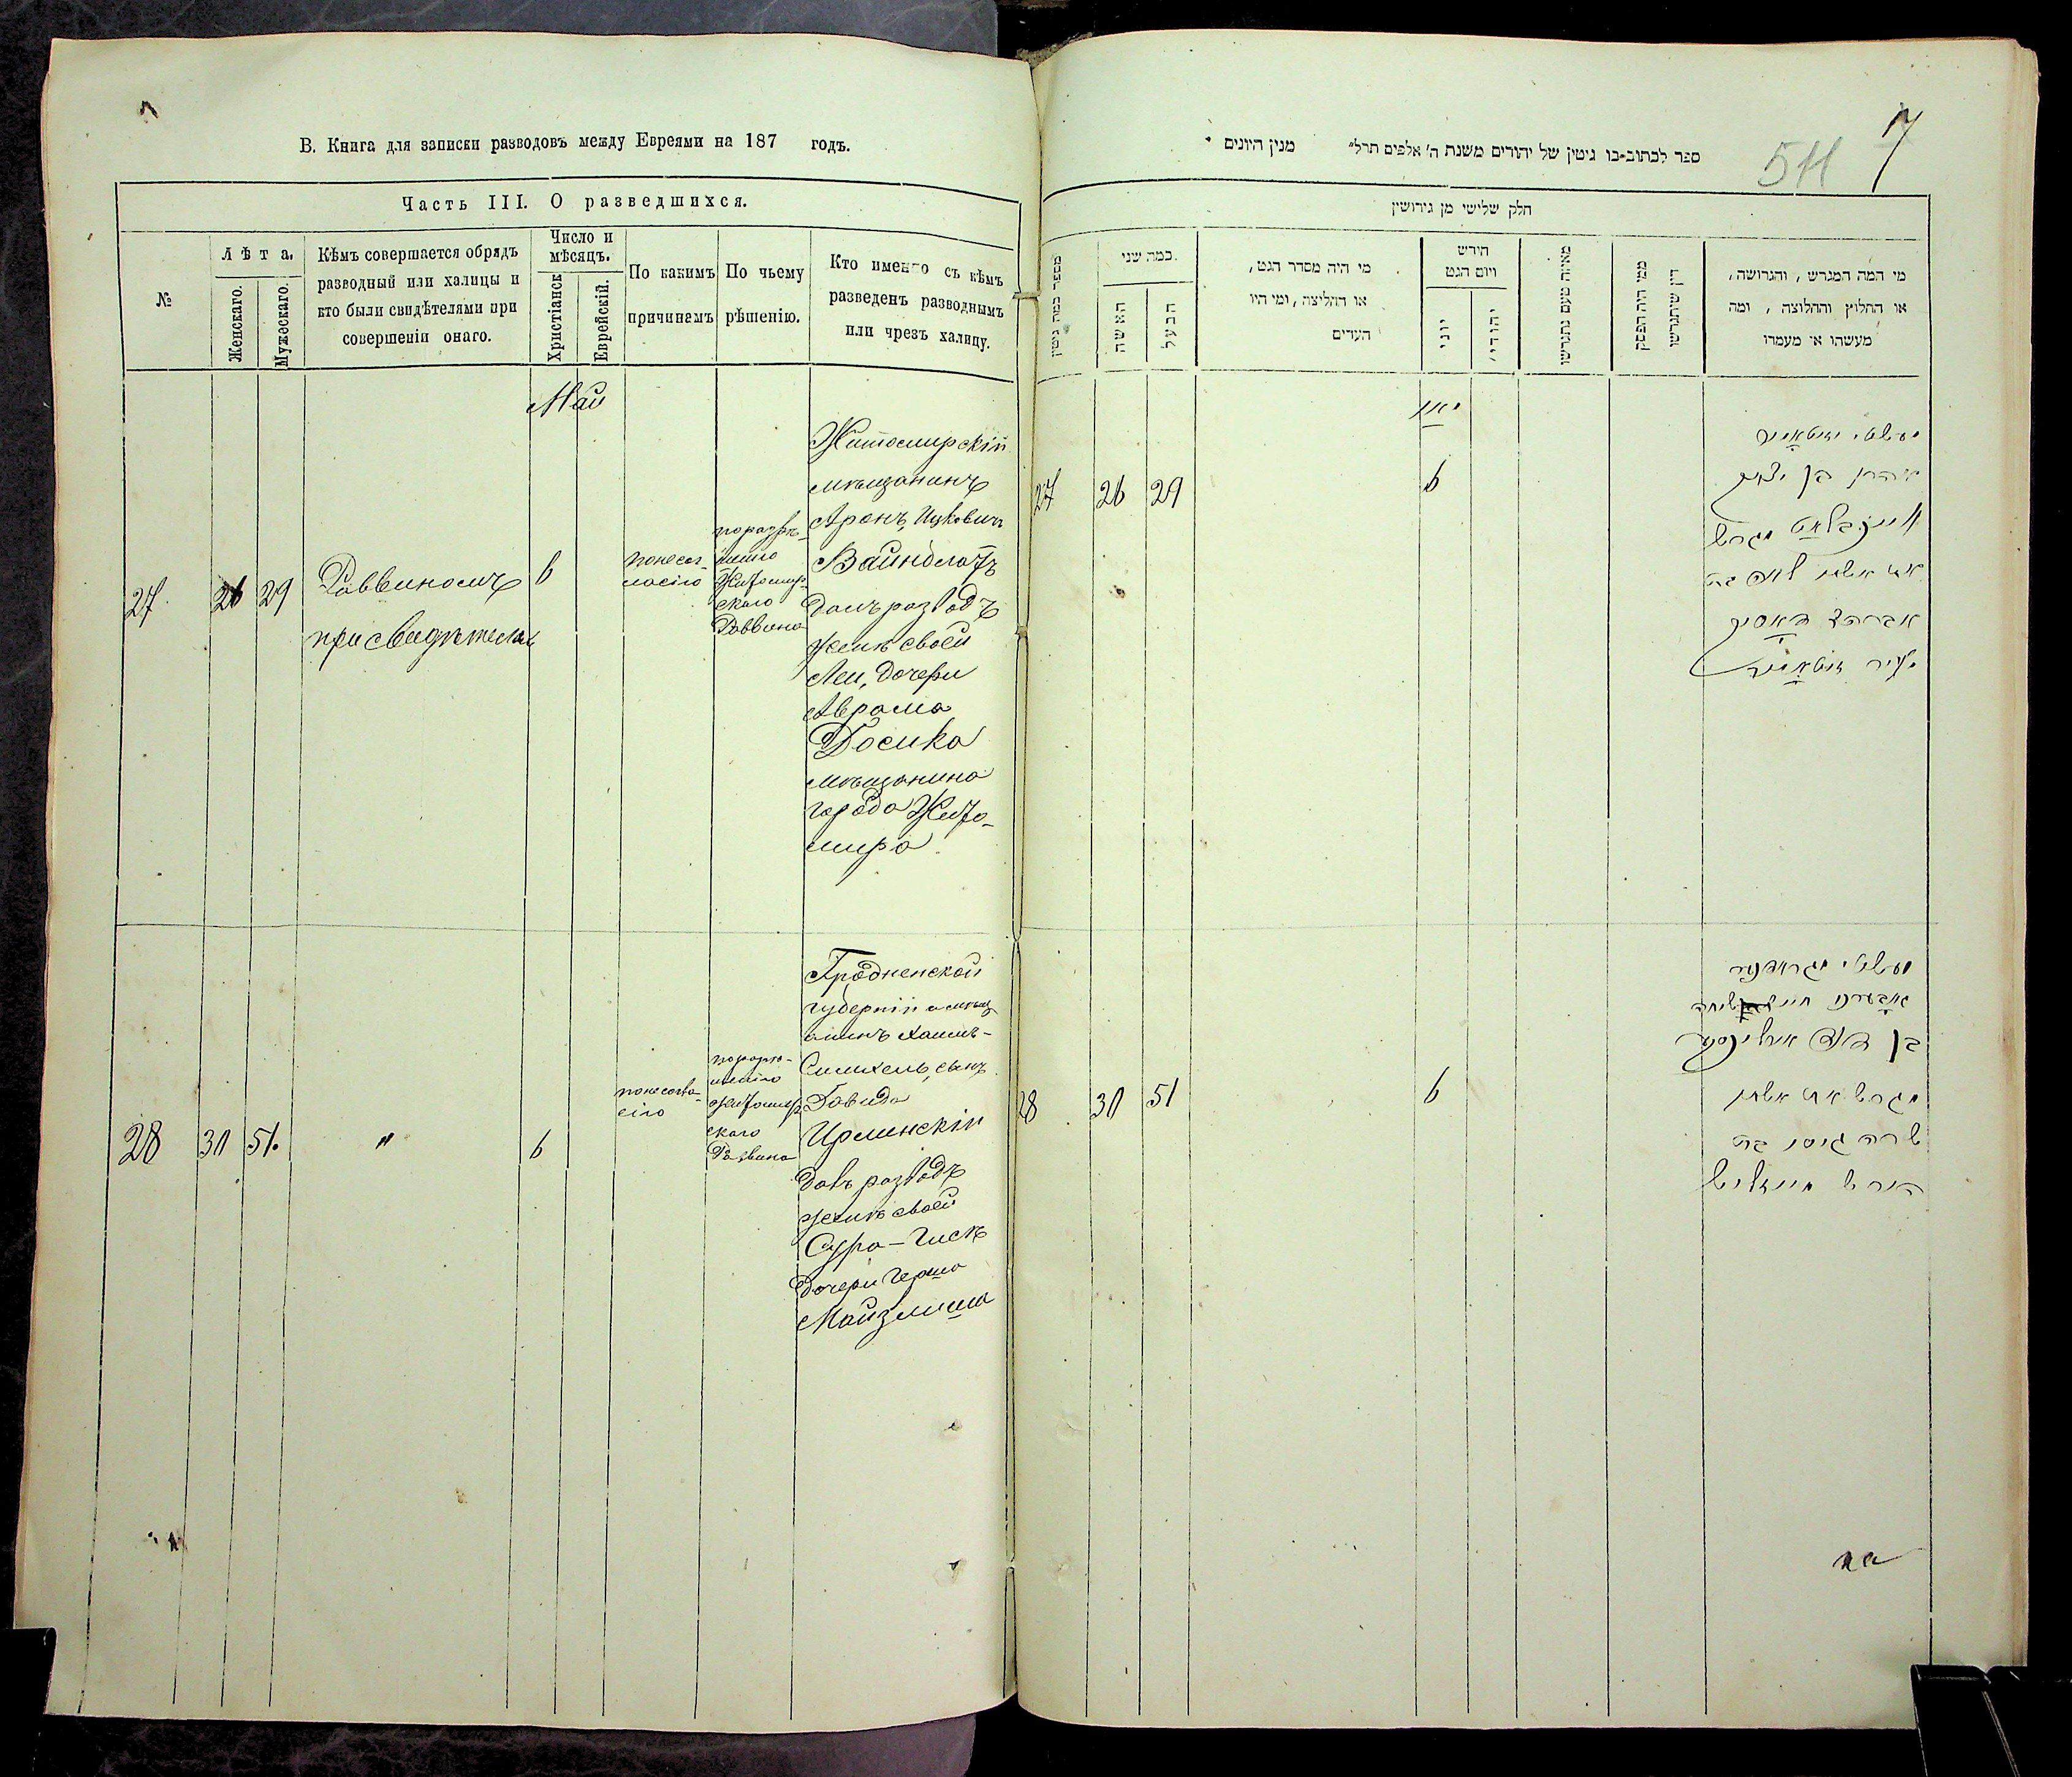 В. Книга для записки разводовъ между Евреями на 187 годъ.
Часть III. О разведшихся.
№
Лѣта.
Женскаго.
Мужескаго.
Кѣмъ совершается обрядъ
разводный или халицы и
кто были свидѣтелями при
совершеніи онаго.
Число и
мѣсяцъ.
Христіанск
Еврейскій.
По какимъ
причинамъ
По чьему
рѣшенію.
Кто именно съ кѣмъ
разведенъ разводнымъ
или чрезъ халицу.
Май
27
26
29
Раввиномъ
при свидѣтелях
6
по несог-
ласію
по разрѣ-
шенію
Житомир-
скаго
Раввина
Житомирскій
мѣщанинъ
Аронъ Ицковичъ
Вайнблатъ
далъ разводъ
женѣ своей
Леи, дочери
Аврама
Досика
мѣщанина
города Жито-
мира
28
30
51.
"
6
по несогла-
сію
по разрѣ-
шенію
Житомир
скаго
Раввина
Гродненской
губерніи мѣщ
анинъ Хаимъ-
сынъ
Давида
далъ разводъ
женѣ своей
Сура-Гися
дочери Герша
Майзлиша
ספר לכתוב־בו גיטין של יהודים משנת ה' אלפים תרל" מנין היונים
511
7
חלק שלישי מן גירושין
מספר כמה גיטין
כמה שני
האשה
הבעל
מי היה מסדר הגט,
או החליצה, ומי היו
העדים
חודש
ויום הגט
יוני
יהודי
מאיזה טעם נתגרשו
ממי היה הפסק
דין שיתגרשו
מי המה המגרש, והגרושה,
או החלוץ והחלוצה, ומה
מעשהו או מעמדו
מאי
27
26
29
6
אהרן בן יצחק
וויינבלאט מגרש
את אשתו לאה בת
אברהם דאסיק
מעיר זיטאמיר
28
30
51
6
מגרש את אשתו
שרה גיסי בת
הירש מייזליש